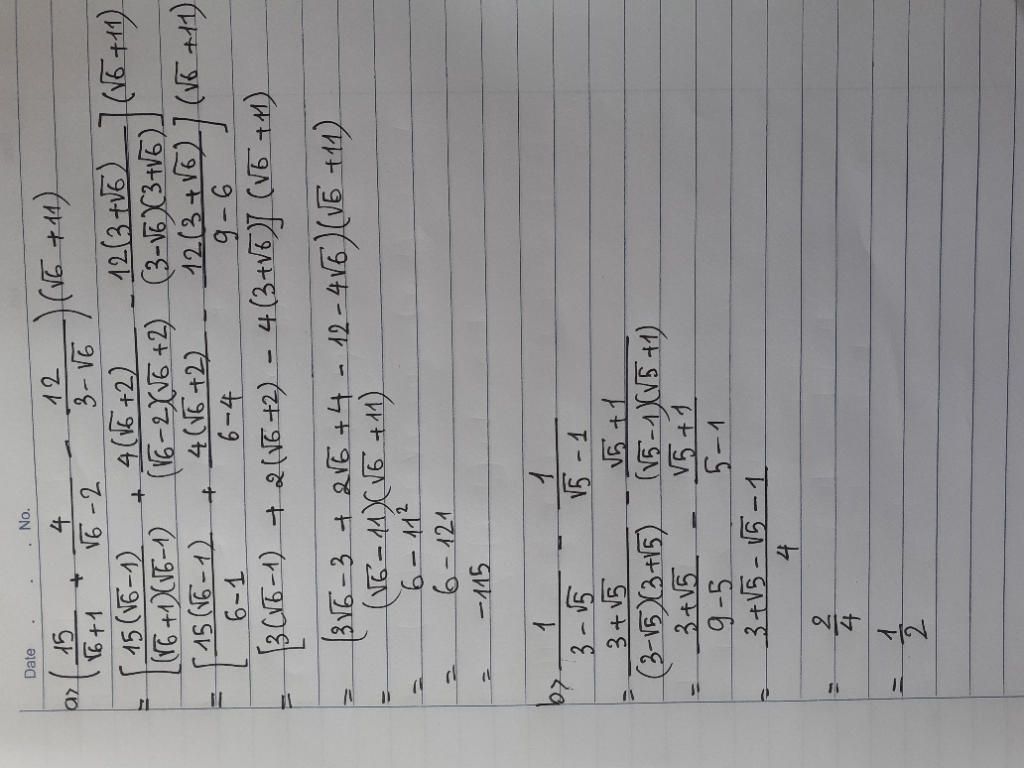 Date . . No.
a) (15/(√6+1) + 4/(√6-2) - 12/(3-√6))(√6+11)
= [15(√6-1)/((√6+1)(√6-1)) + 4(√6+2)/((√6-2)(√6+2)) - 12(3+√6)/((3-√6)(3+√6))](√6+11)
= [15(√6-1)/(6-1) + 4(√6+2)/(6-4) - 12(3+√6)/(9-6)](√6+11)
= [3(√6-1) + 2(√6+2) - 4(3+√6)](√6+11)
= (3√6-3 + 2√6+4 - 12-4√6)(√6+11)
= (√6-11)(√6+11)
= 6-11²
= 6-121
= -115
b) 1/(3-√5) - 1/(√5-1)
= (3+√5)/((3-√5)(3+√5)) - (√5+1)/((√5-1)(√5+1))
= (3+√5)/(9-5) - (√5+1)/(5-1)
= (3+√5-√5-1)/4
= 2/4
= 1/2